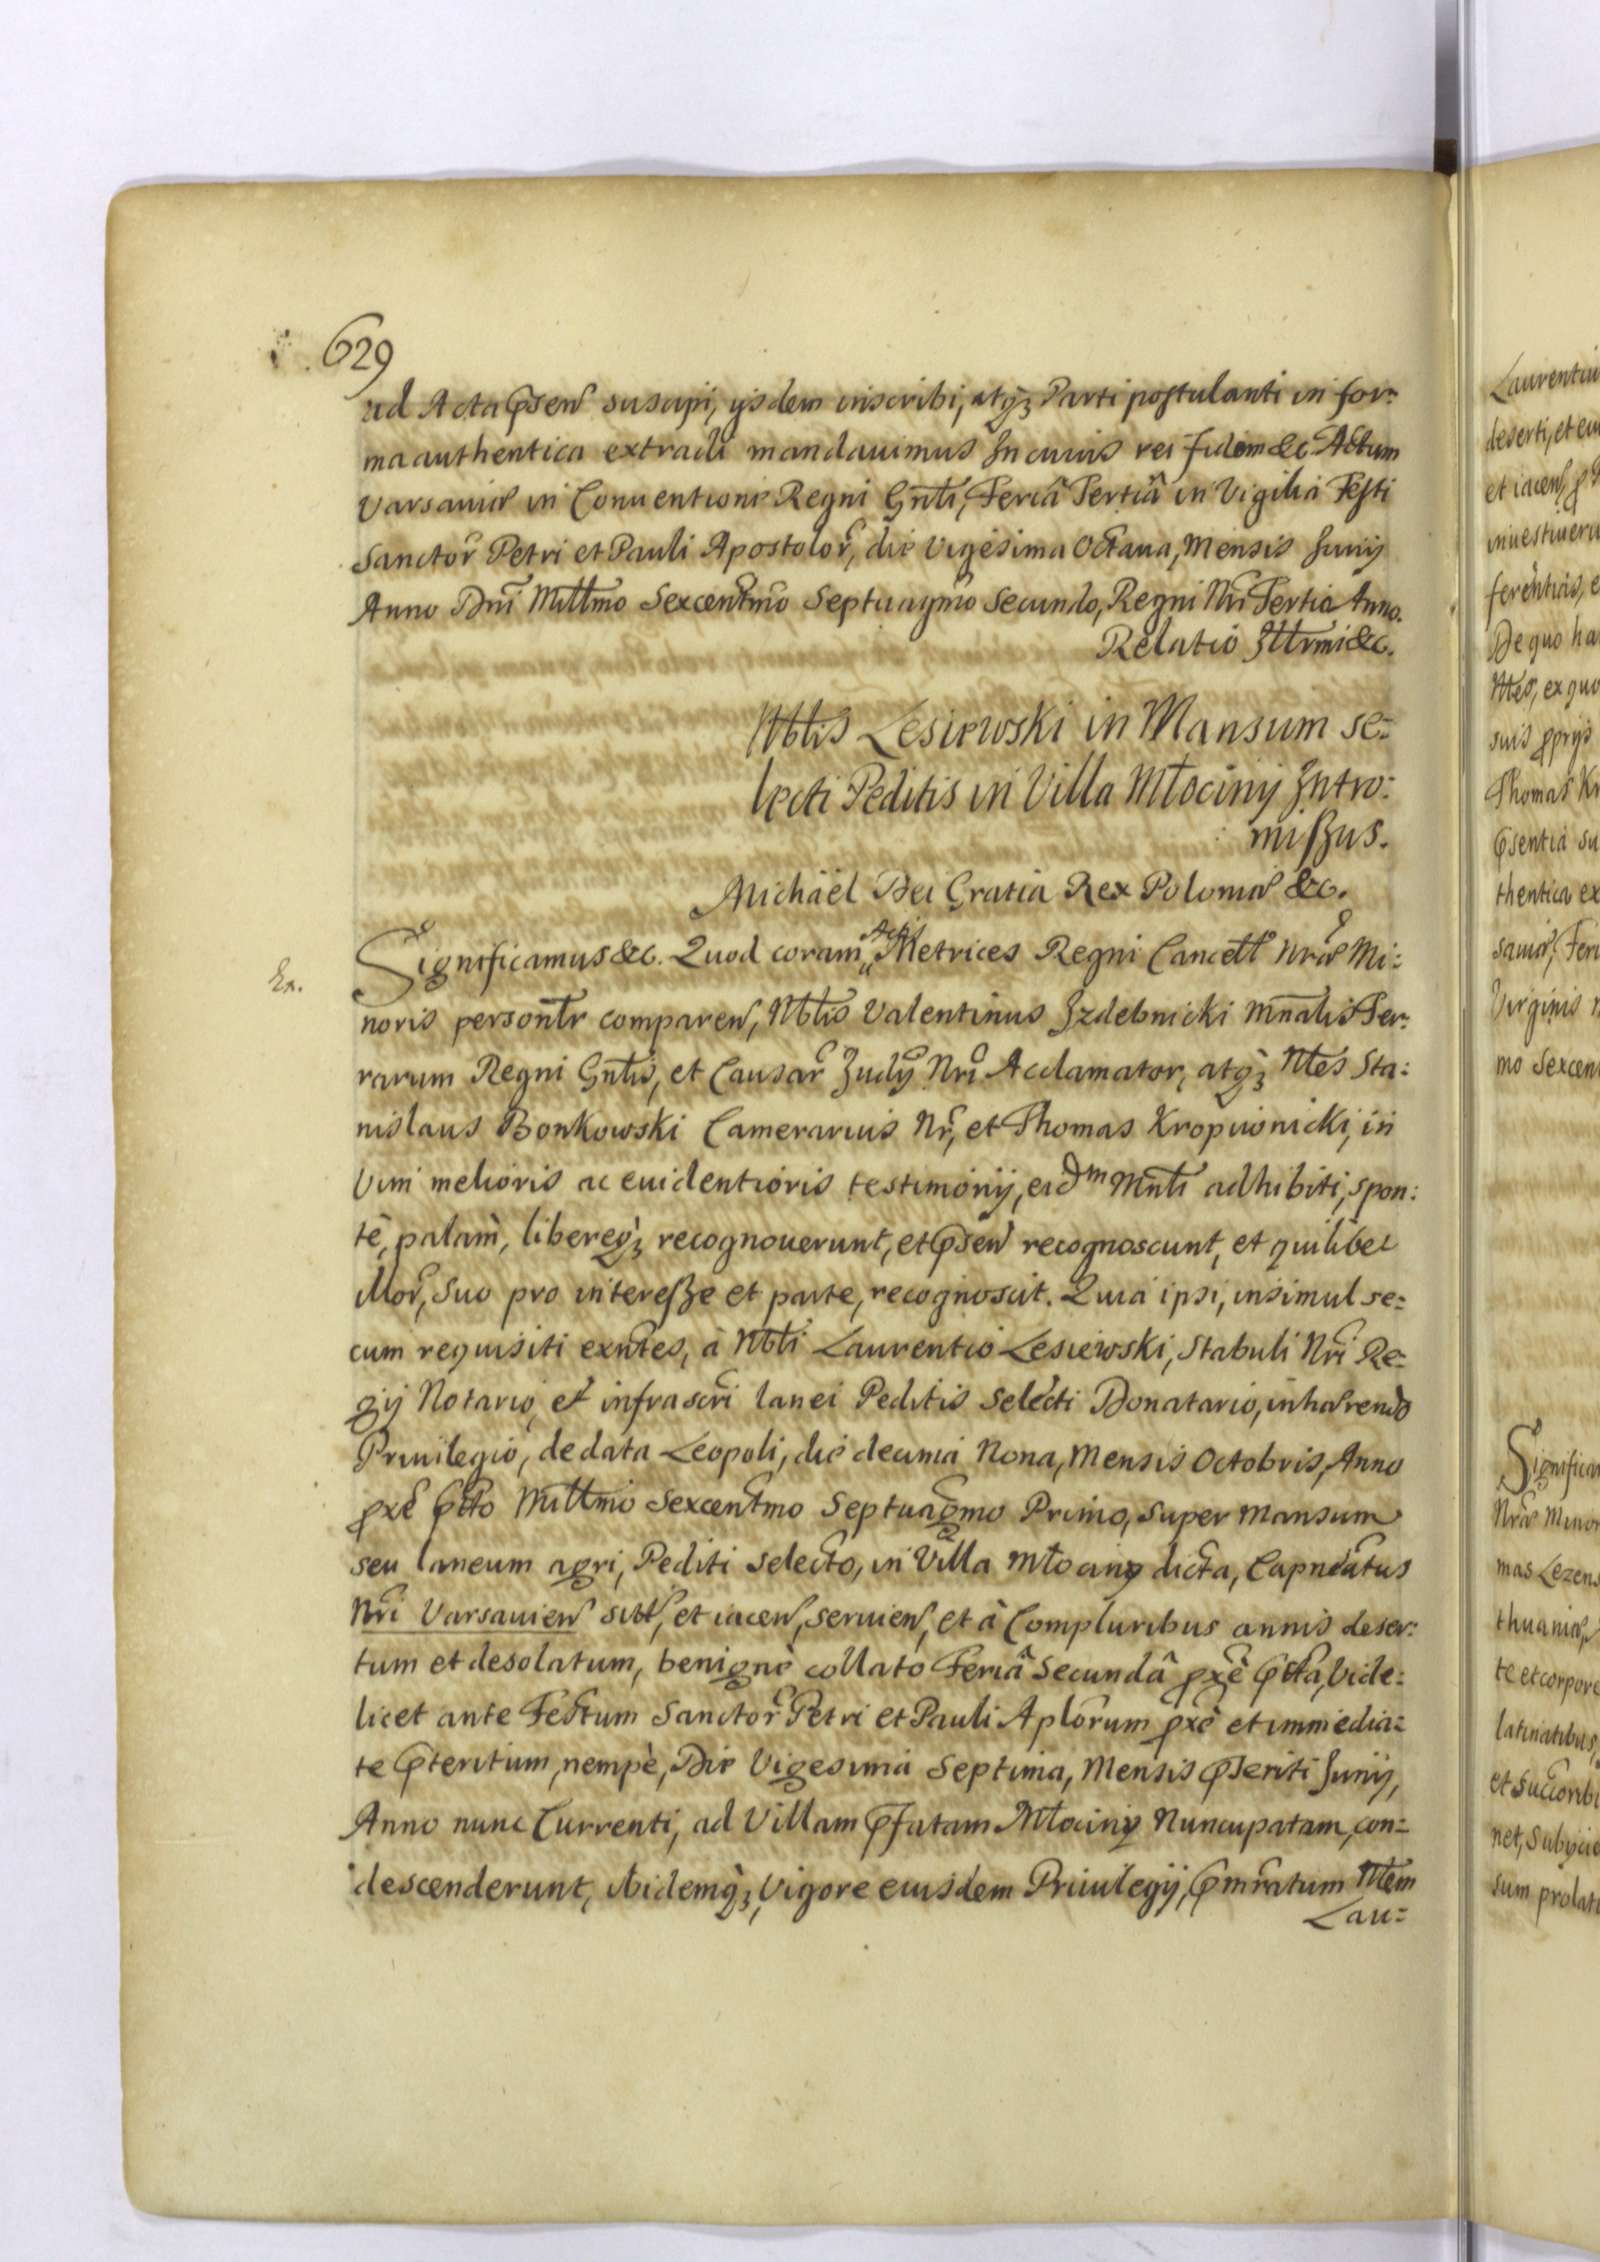 629
ad Acta p̃sen̄ suscipi, ijsdem inscribi, atq̃ꝫ Parti postulanti in for:
ma authentica extradi mandauimus In cuius rei fidem &c Actum
Varsauiæ in Conuentione Regni Gñli, Feriâ Tertiâ in Vigilia Festi
Sanctor̃ Petri et Pauli Apostolor̃, die Vigesima Octaua, Mensis Junij
Anno Dñi Mill̃mo Sexcent̃mo Septuagmo Secundo, Regni Nr̃i Tertio Anno.
Relatio Jll̃rmi &c.
Nb̃lis Lesiewski in Mansum se:
lecti Peditis in Villa Młociny Intro:
missus.
Michäel Dei Gratia Rex Poloniæ &c.
Ex.
Significamus &c. Quod coram Actis Metrices Regni Cancell̃ Nr̃æ Mi:
noris person̄lr comparen̄, Nb̃lis Valentinus Jzdebnicki Mñalis Ter:
rarum Regni Gñlis, et Causar̃ Judy Nr̃i Acclamator, atq̃ꝫ Nl̃es Sta:
nislaus Bonkowski Camerarius Nr̃, et Thomas Kropiwnicki, in
Vim melioris ac euidentioris testimonij, eidm Mñli adhibiti, spon:
tè, palàm, libereq̃ꝫ recognouerunt, et p̃sen̄ recognoscunt, et quilibet
illor̃, suo pro interesse et parte, recognoscit. Quia ipsi, insimul se:
cum requisiti exñtes, à Nb̃li Laurentio Lesiewski, Stabuli Nr̃i Re:
gij Notario, et infrascr̃i lanei Peditis Selecti Donatario, inhærendo
Priuilegio, de data Leopoli, die decima Nona, Mensis Octobris, Anno
p̃xè p̃tto Mill̃mo Sexcent̃mo Septuagmo Primo, super Mansum
seu laneum agri, Pediti selecto, in Villa Młociny dicta, Capneatus
Nr̃i Varsauien̄ sitt̃, et iacen̄, seruien̄, et à Compluribus annis deser:
tum et desolatum, benignè collato Feriâ Secundâ p̃xè p̃tta, Vide:
licet ante Festum Sanctor̃ Petri et Pauli Aplorum p̃xè et immedia:
te p̃teritum, nempè, Die Vigesima Septima, Mensis p̃teriti Junij,
Anno nunc Currenti, ad Villam p̃fatam Młociny Nuncupatam, con:
descenderunt, ibidemq̃ꝫ, Vigore eiusdem Priuilegij, p̃mr̃atum Nl̃em
Lau:
Laurentiu
deserti, et
et iacen̄,
inuestiueru
ferentias,
De quo ha
Nl̃es, ex quo
suis p̃prijs
Thomas Kr
p̃sentia su
thentica ex
sauiæ, Feri
Virginis
mo Sexcen
Significa
Nr̃æ Minor
mas Lezens
thuaniæ,
te et corpore
latinatibus,
et Succorib
net, Subijcie
sum prolat